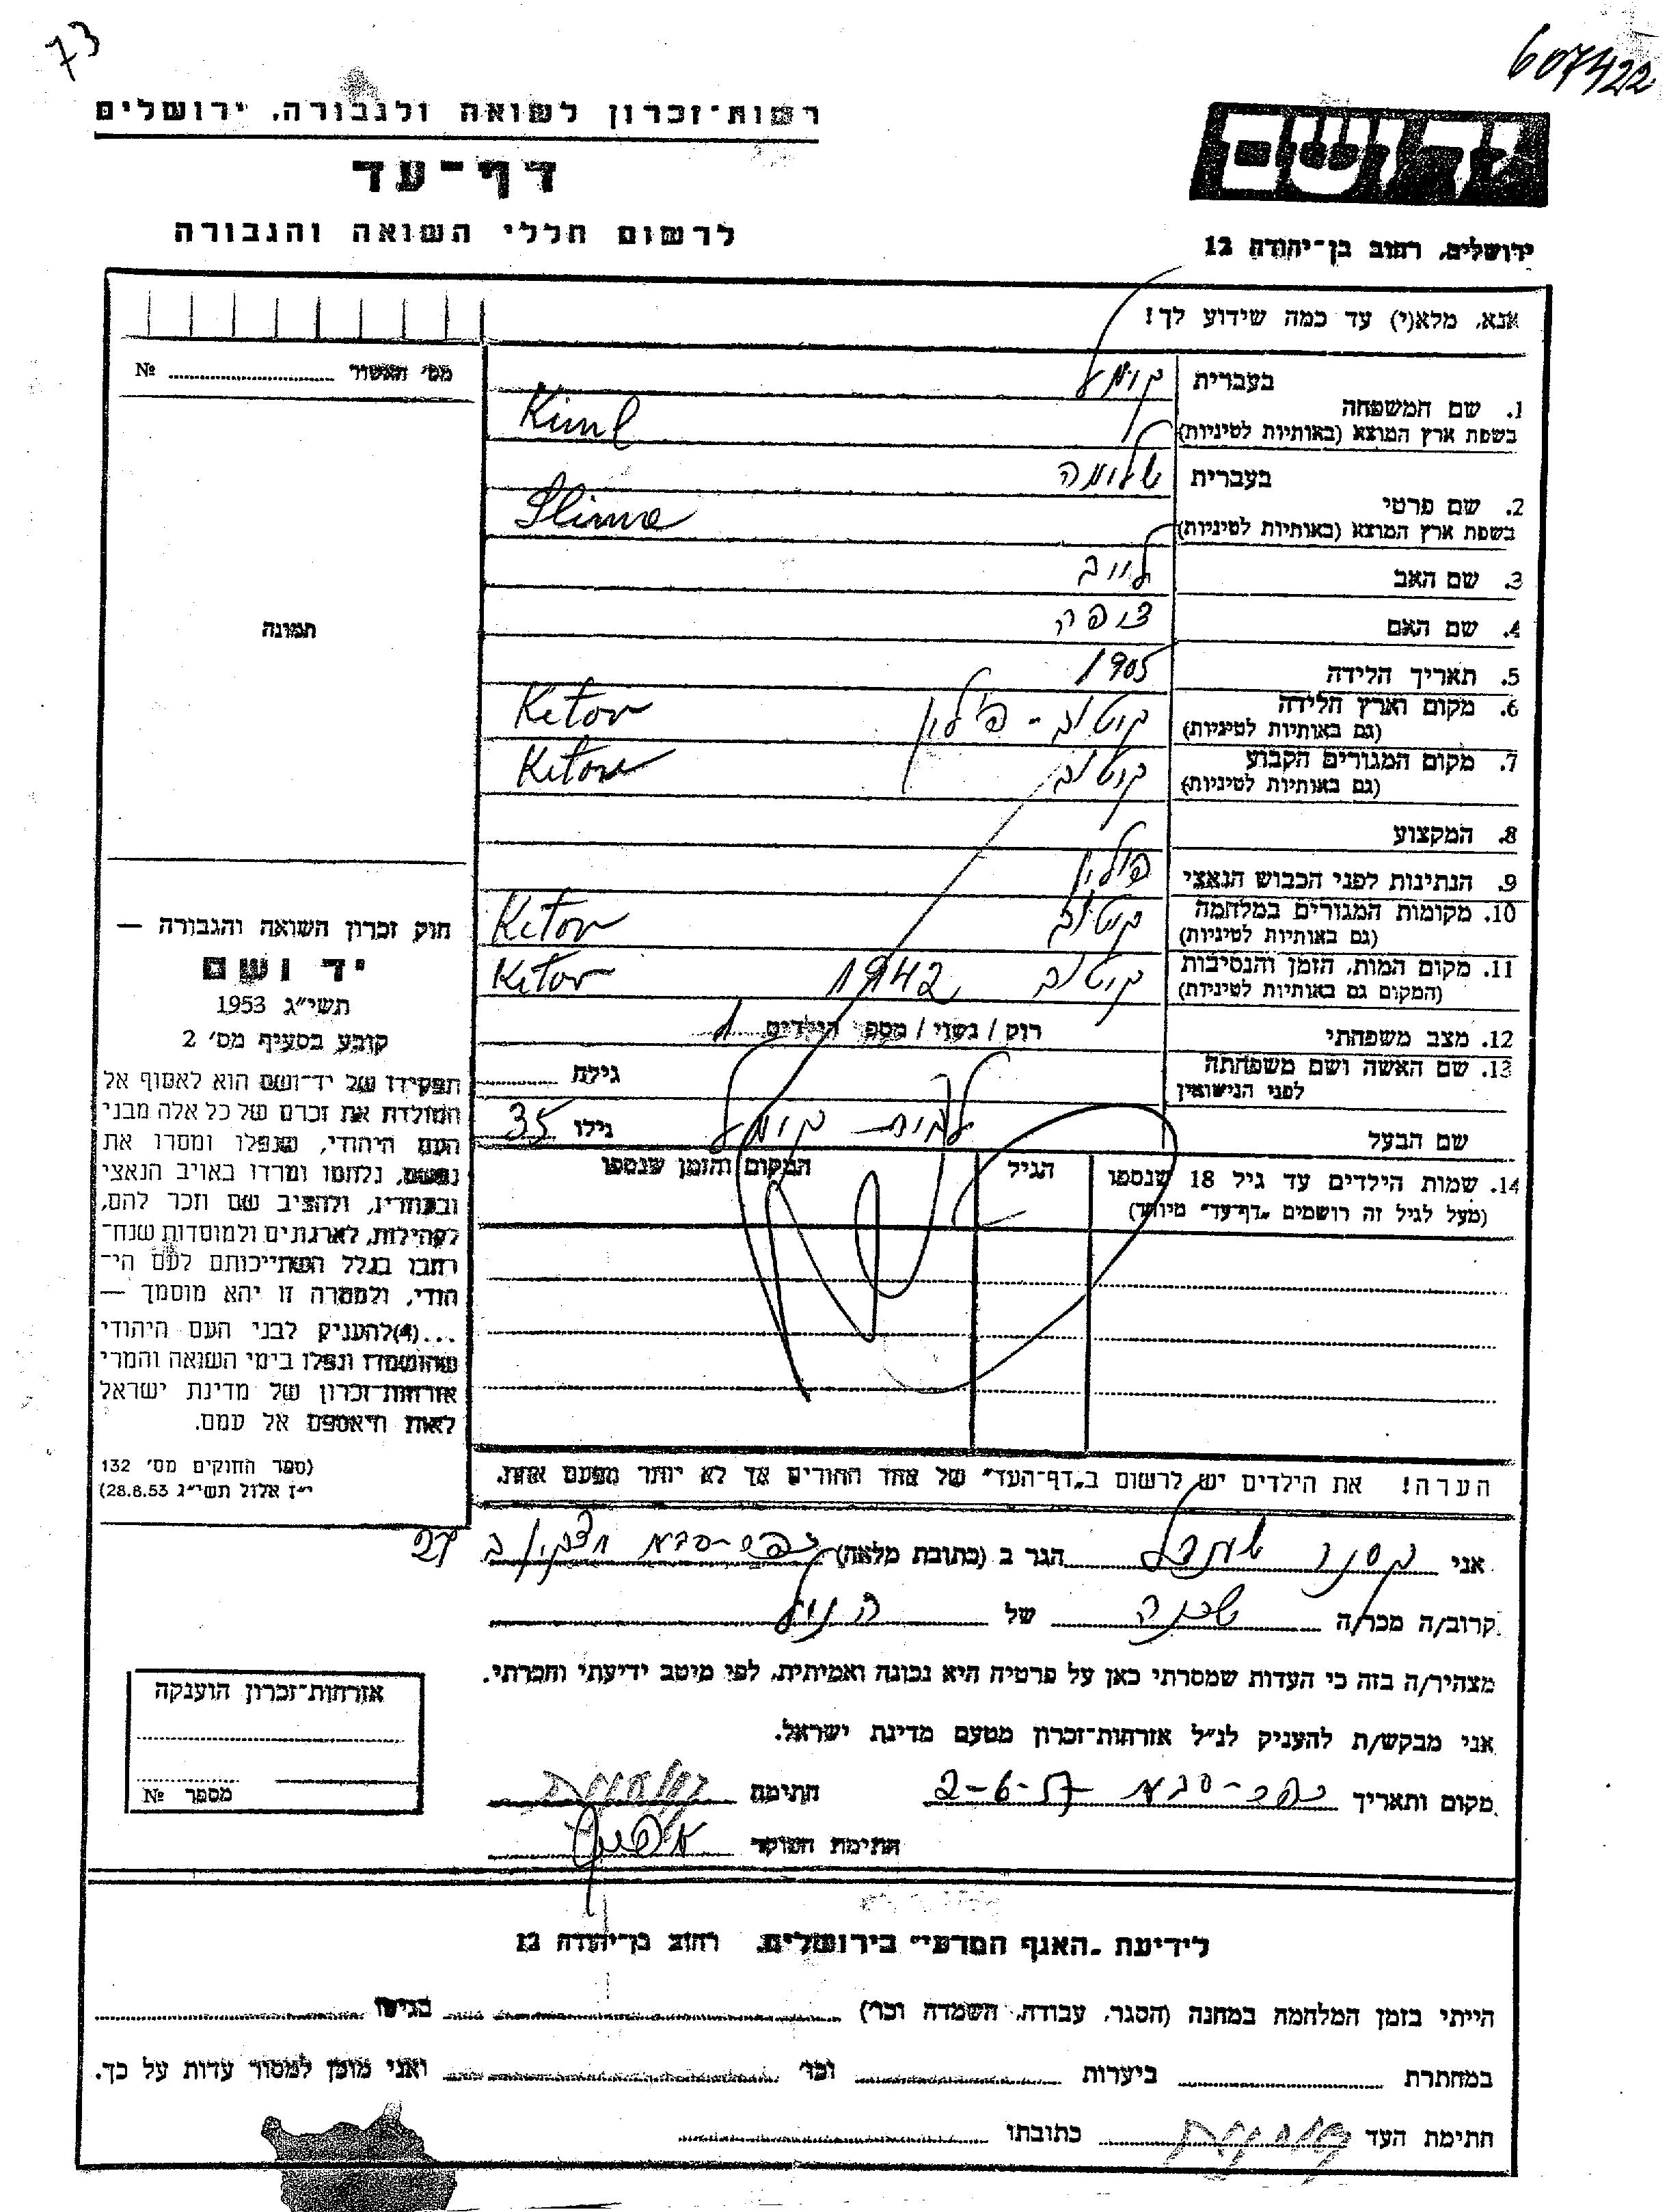 73
607422
רשות־זכרון לשואה ולגבורה, ירושלים
דף־עד
לרשום חללי השואה והגבורה
יד ושם
ירושלים, רחוב בן־יהודה 12
אנא, מלא(י) עד כמה שידוע לך!
מס' האשור № 
1. שם המשפחה
בעברית קומל
בשפת ארץ המוצא (באותיות לטיניות) Kiml
2. שם פרטי
בעברית שלומה
בשפת ארץ המוצא (באותיות לטיניות) Slima
3. שם האב לייב
4. שם האם צופה
5. תאריך הלידה 1905
6. מקום וארץ הלידה קיטוב - פולין Kitov
(גם באותיות לטיניות)
7. מקום המגורים הקבוע קיטוב Kitov
(גם באותיות לטיניות)
8. המקצוע
9. הנתינות לפני הכבוש הנאצי פולין
10. מקומות המגורים במלחמה קיטוב Kitov
(גם באותיות לטיניות)
11. מקום המות, הזמן והנסיבות קיטוב 1942 Kitov
(המקום גם באותיות לטיניות)
12. מצב משפחתי רוק / נשוי / מספ' הילדים 1
13. שם האשה ושם משפחתה לפני הנישואין גילה
שם הבעל קומל גילו 35
14. שמות הילדים עד גיל 18 שנספו הגיל המקום והזמן שנספו
(מעל לגיל זה רושמים „דף־עד" מיוחד)
תמונה
חוק זכרון השואה והגבורה —
יד ושם
תשי"ג 1953
קובע בסעיף מס' 2
תפקידו של יד־ושם הוא לאסוף אל
המולדת את זכרם של כל אלה מבני
העם היהודי, שנפלו ומסרו את
נפשם, נלחמו ומרדו באויב הנאצי
ובעוזריו, ולהציב שם וזכר להם,
לקהילות, לארגונים ולמוסדות שנח־
רבו בגלל השתייכותם לעם הי־
הודי, ולמטרה זו יהא מוסמך —
...(4)להעניק לבני העם היהודי
שהושמדו ונפלו בימי השואה והמרי
אזרחות־זכרון של מדינת ישראל
לאות היאספם אל עמם.
(ספר החוקים מס' 132
י"ז אלול תשי"ג 28.8.53)
הערה! את הילדים יש לרשום ב„דף־העד" של אחד ההורים אך לא יותר מפעם אחת.
אני קסנר הגר ב (כתובת מלאה) כפר-סבא 27
קרוב/ה מכר/ה שכנה של הנ"ל
מצהיר/ה בזה כי העדות שמסרתי כאן על פרטיה היא נכונה ואמיתית, לפי מיטב ידיעתי והכרתי.
אני מבקש/ת להעניק לנ"ל אזרחות־זכרון מטעם מדינת ישראל.
מקום ותאריך כפר-סבא 2-6-57 חתימה
חתימת הפוקד
אזרחות־זכרון הוענקה
מספר №
לידיעת „האגף המדעי" בירושלים, רחוב בן־יהודה 12
הייתי בזמן המלחמה במחנה (הסגר, עבודה, השמדה וכו') בגיטו
במחתרת ביערות וכו' ואני מוכן למסור עדות על כך.
חתימת העד כתובתו